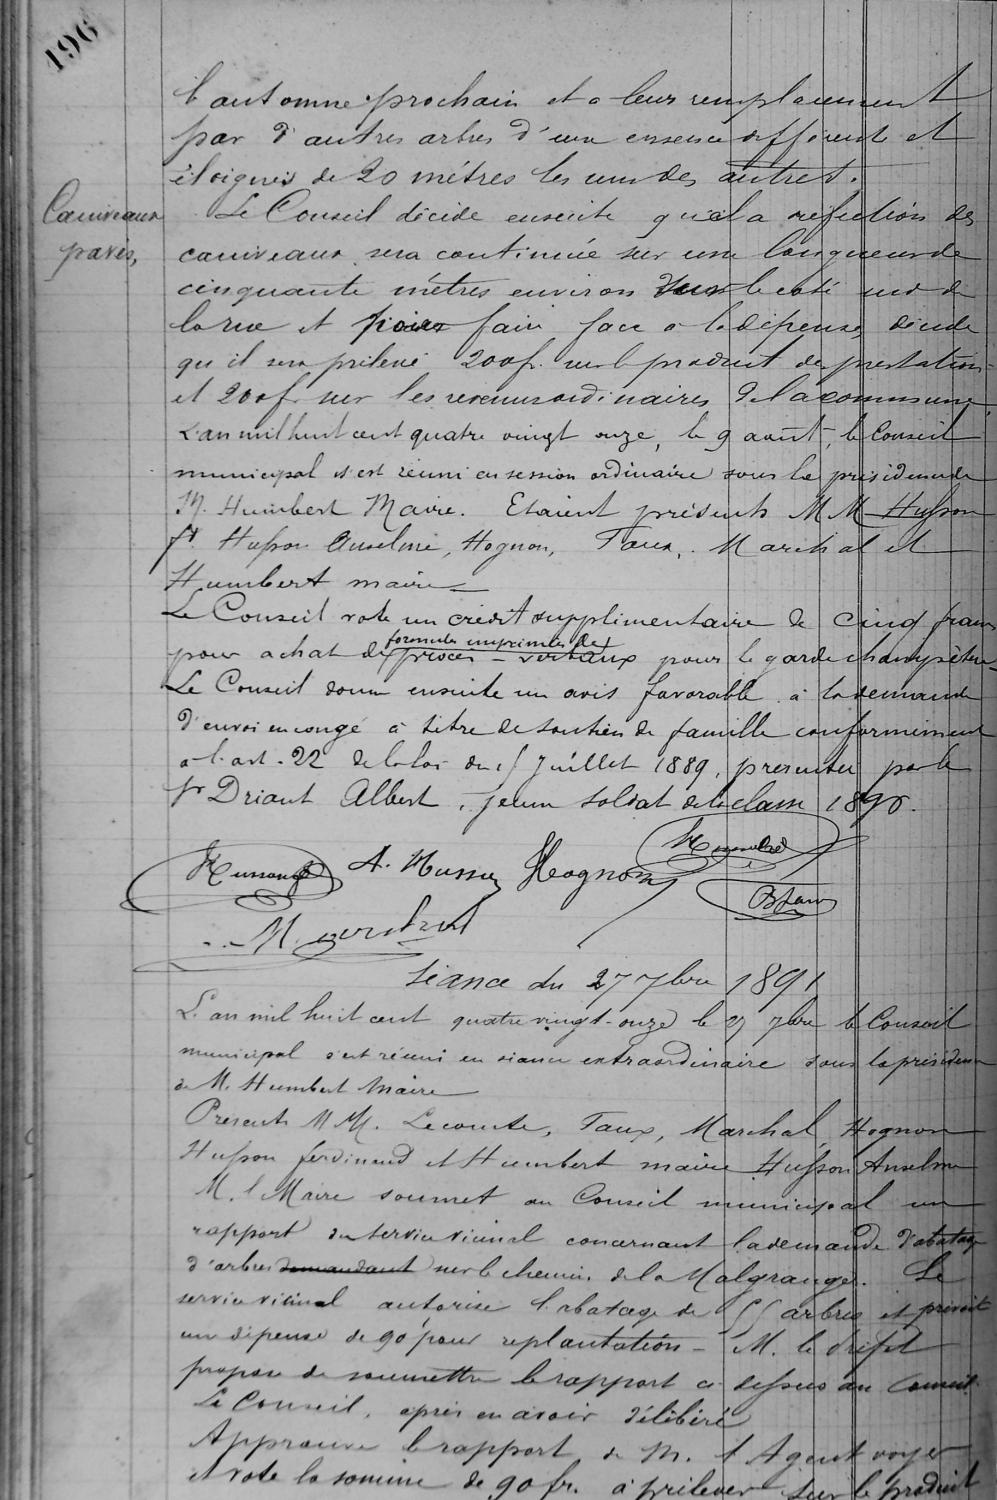 196
l'automne prochain et a leur remplacement
par d'autres arbres d'une essence différente et
éloignés de 20 mètres les uns des autres.
Caniveaux
pavés,
Le Conseil décide ensuite qu'il a réfection des
caniveaux sera continuée sur une longueur de
cinquante mètres environ sur le coté sud de
la rue et pour faire face a la dépense, décide
qu'il sera prélevé 200f. sur le produit des prestations
et 200f. sur les revenus ordinaires de la commune
L'an mil huit cent quatre vingt onze, le 9 août, le Conseil
municipal s'est réuni en session ordinaire sous la présidence de
M. Humbert Maire. Etaient présents MM Husson
ft. Husson Anselme, Hognon, Taux, Marchal et
Humbert maire
Le Conseil vote un crédit supplémentaire de cinq francs
formules imprimées de
pour achat de procès-verbaux pour le garde champêtre
Le Conseil donne ensuite un avis favorable à la demande
d'envoi en congé à titre de soutien de famille conformément
a l'art. 22 de la loi du 15 Juillet 1889, presentée par le
sr Driant Albert, jeune soldat de la classe 1890.
Husson A. Husson Hognon Humbert
Taux
Marchal
Séance du 27 7bre 1891
L'an mil huit cent quatre vingt-onze le 27 7bre le Conseil
municipal s'est réuni en séance extraordinaire sous la présidence
de M. Humbert Maire
Présents MM. Lecomte, Taux, Marchal, Hognon
Husson ferdinand et Humbert maire Husson Anselme
M. l Maire soumet au Conseil municipal un
rapport du service vicinal concernant la demande d'abatage
d'arbres demandant sur le chemin de la Malgrange. Le
service vicinal autorise l'abatage de 55 arbres et prévoit
une dépense de 90f pour replantation - M. le Préfet
propose de soumettre le rapport ci dessus au Conseil.
Le Conseil, après en avoir délibéré
Approuve le rapport de M. l'Agent voyer
et vote la somme de 90 fr. à prélever sur le produit